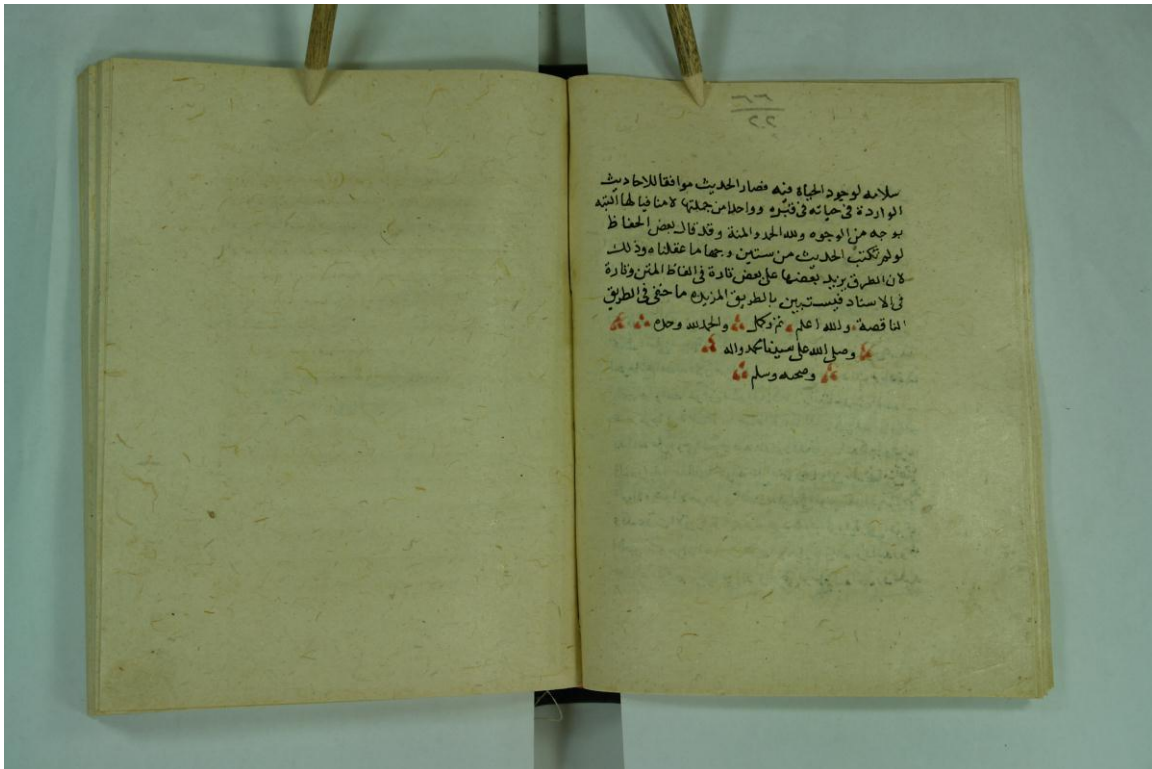 سلامه لوجود الحياة فيه فصار الحديث موافقا للاحاديث
الواردة في حياته في قبره وواحدا من جملتها لا منافيا لها البته
بوجه من الوجوه ولله الحمد والمنة وقد قال بعض الحفاظ
لو لم نكتب الحديث من ستين وجها ما عقلناه وذلك
لان الطرق يزيد بعضها على بعض تارة في الفاظ المتن وتارة
في الاسناد فيستبين بالطريق المزيده ما خفي في الطريق
الناقصة والله اعلم تم وكمل والحمد لله وحده
وصلى الله على سيدنا محمد واله
وصحبه وسلم